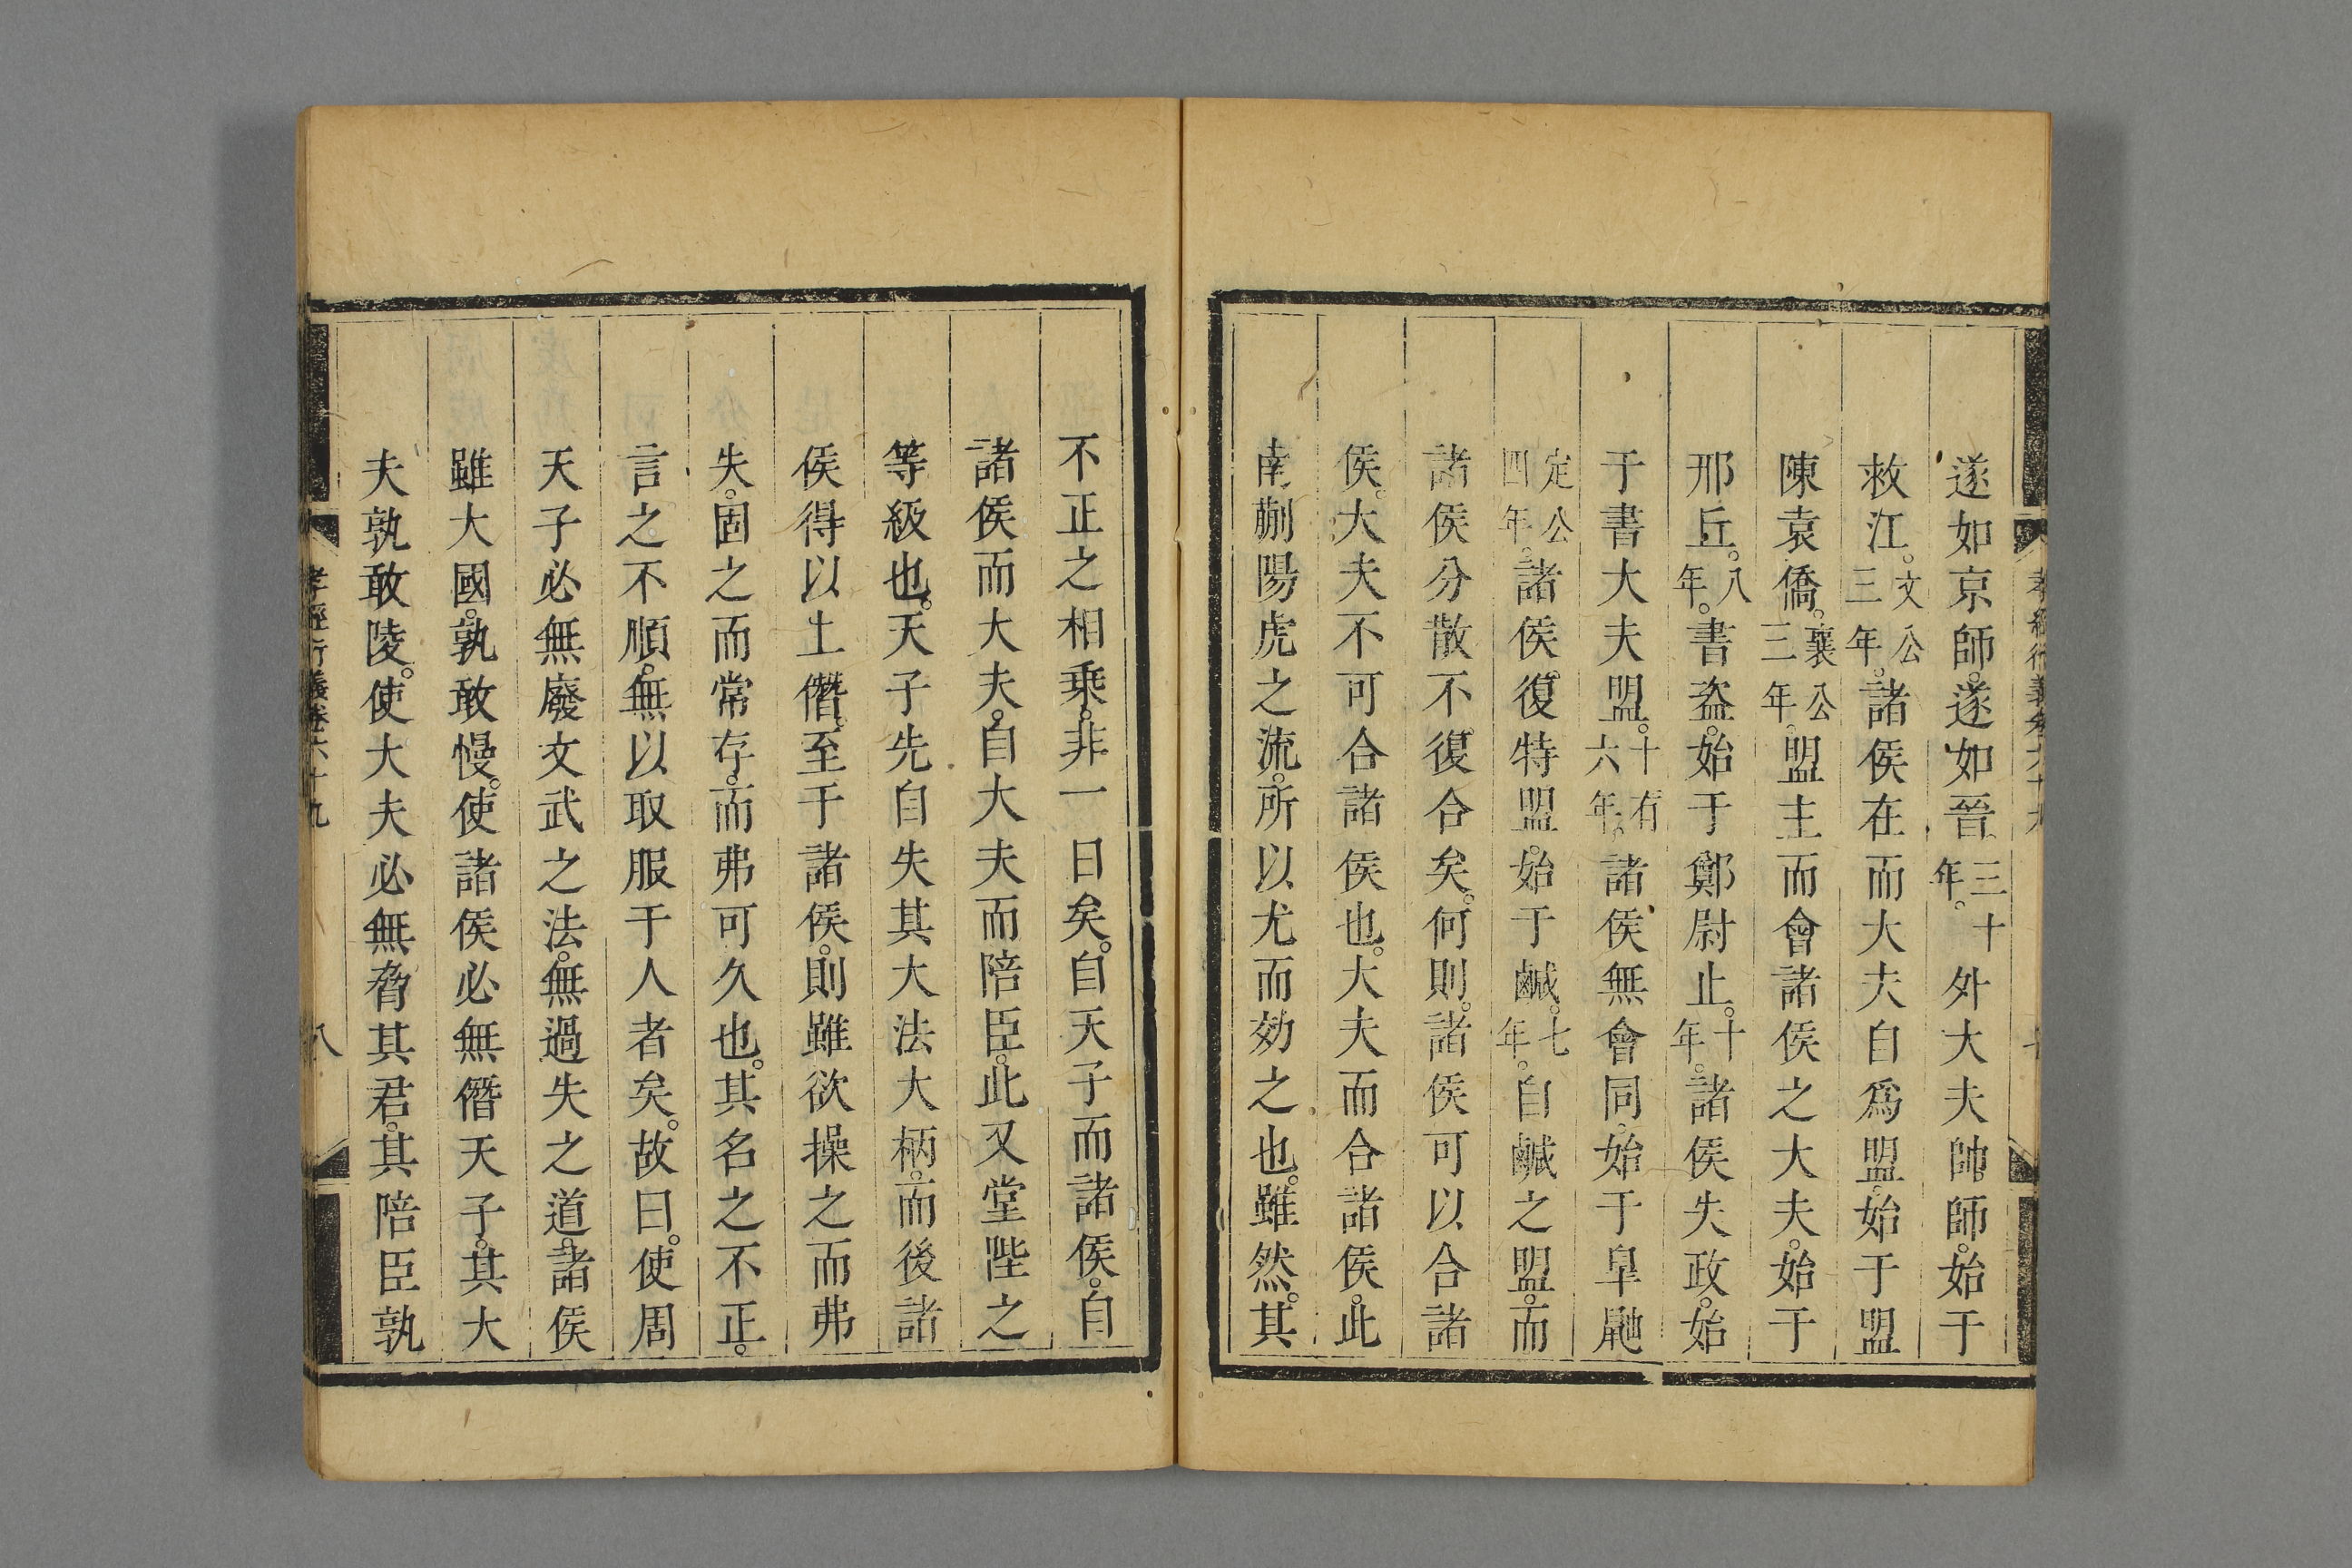 遂如京師。遂如晉。三十年。外大夫帥師。始于
救江。文公三年。諸侯在而大夫自爲盟。始于盟
陳袁僑。襄公三年。盟主而會諸侯之大夫。始于
邢丘。八年。書盜。始于鄭尉止。十年。諸侯失政。始
于書大夫盟。十有六年。諸侯無會同。始于皐鼬
定公四年。諸侯。復特盟。始于鹹。七年。自鹹之盟。而
諸侯分散不復合矣。何則。諸侯可以合諸
侯。大夫不可合諸侯也。大夫而合諸侯。此
南蒯陽虎之流。所以尤而効之也。雖然。其
不正之相乗。非一日矣。自天子而諸侯。自
諸侯而大夫。自大夫而陪臣。此又堂陛之
等級也。天子先自失其大法大柄。而後諸
侯得以上僭。至于諸侯。則雖欲操之而弗
失。固之而常存。而弗可久也。其名之不正。
言之不順。無以取服于人者矣。故曰。使周
天子必無廢文武之法。無過失之道。諸侯
雖大國。孰敢慢。使諸侯必無僭天子。其大
夫孰敢陵。使大夫必無脅其君。其陪臣孰
孝經衍義卷六十九
八